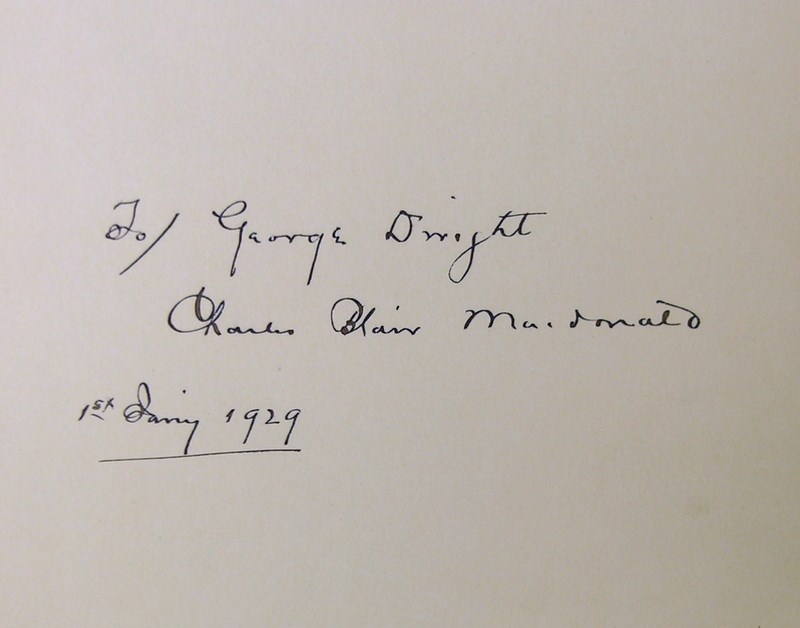 To/ George Dwight
Charles Blair Macdonald
1st Jany 1929